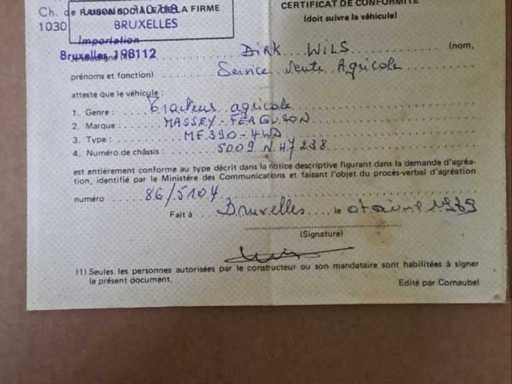 CERTIFICAT DE CONFORMITÉ
(doit suivre le véhicule)
Ch. de
RAISON SOCIALE DE LA FIRME
1030
BRUXELLES
Importation
Bruxelles 198112
DIRK WILS (nom,
prénoms et fonction) Service Vente Agricole
atteste que le véhicule :
1. Genre : tracteur agricole
2. Marque : MASSEY-FERGUSON
3. Type : MF390-4WD
4. Numéro de châssis : 5009 N47238
est entièrement conforme au type décrit dans la notice descriptive figurant dans la demande d'agréa-
tion, identifié par le Ministère des Communications et faisant l'objet du procès-verbal d'agréation
numéro 86/5104
Fait à Bruxelles le 1989
(Signature)
(1) Seules les personnes autorisées par le constructeur ou son mandataire sont habilitées à signer
le présent document. Edité par Comaubel